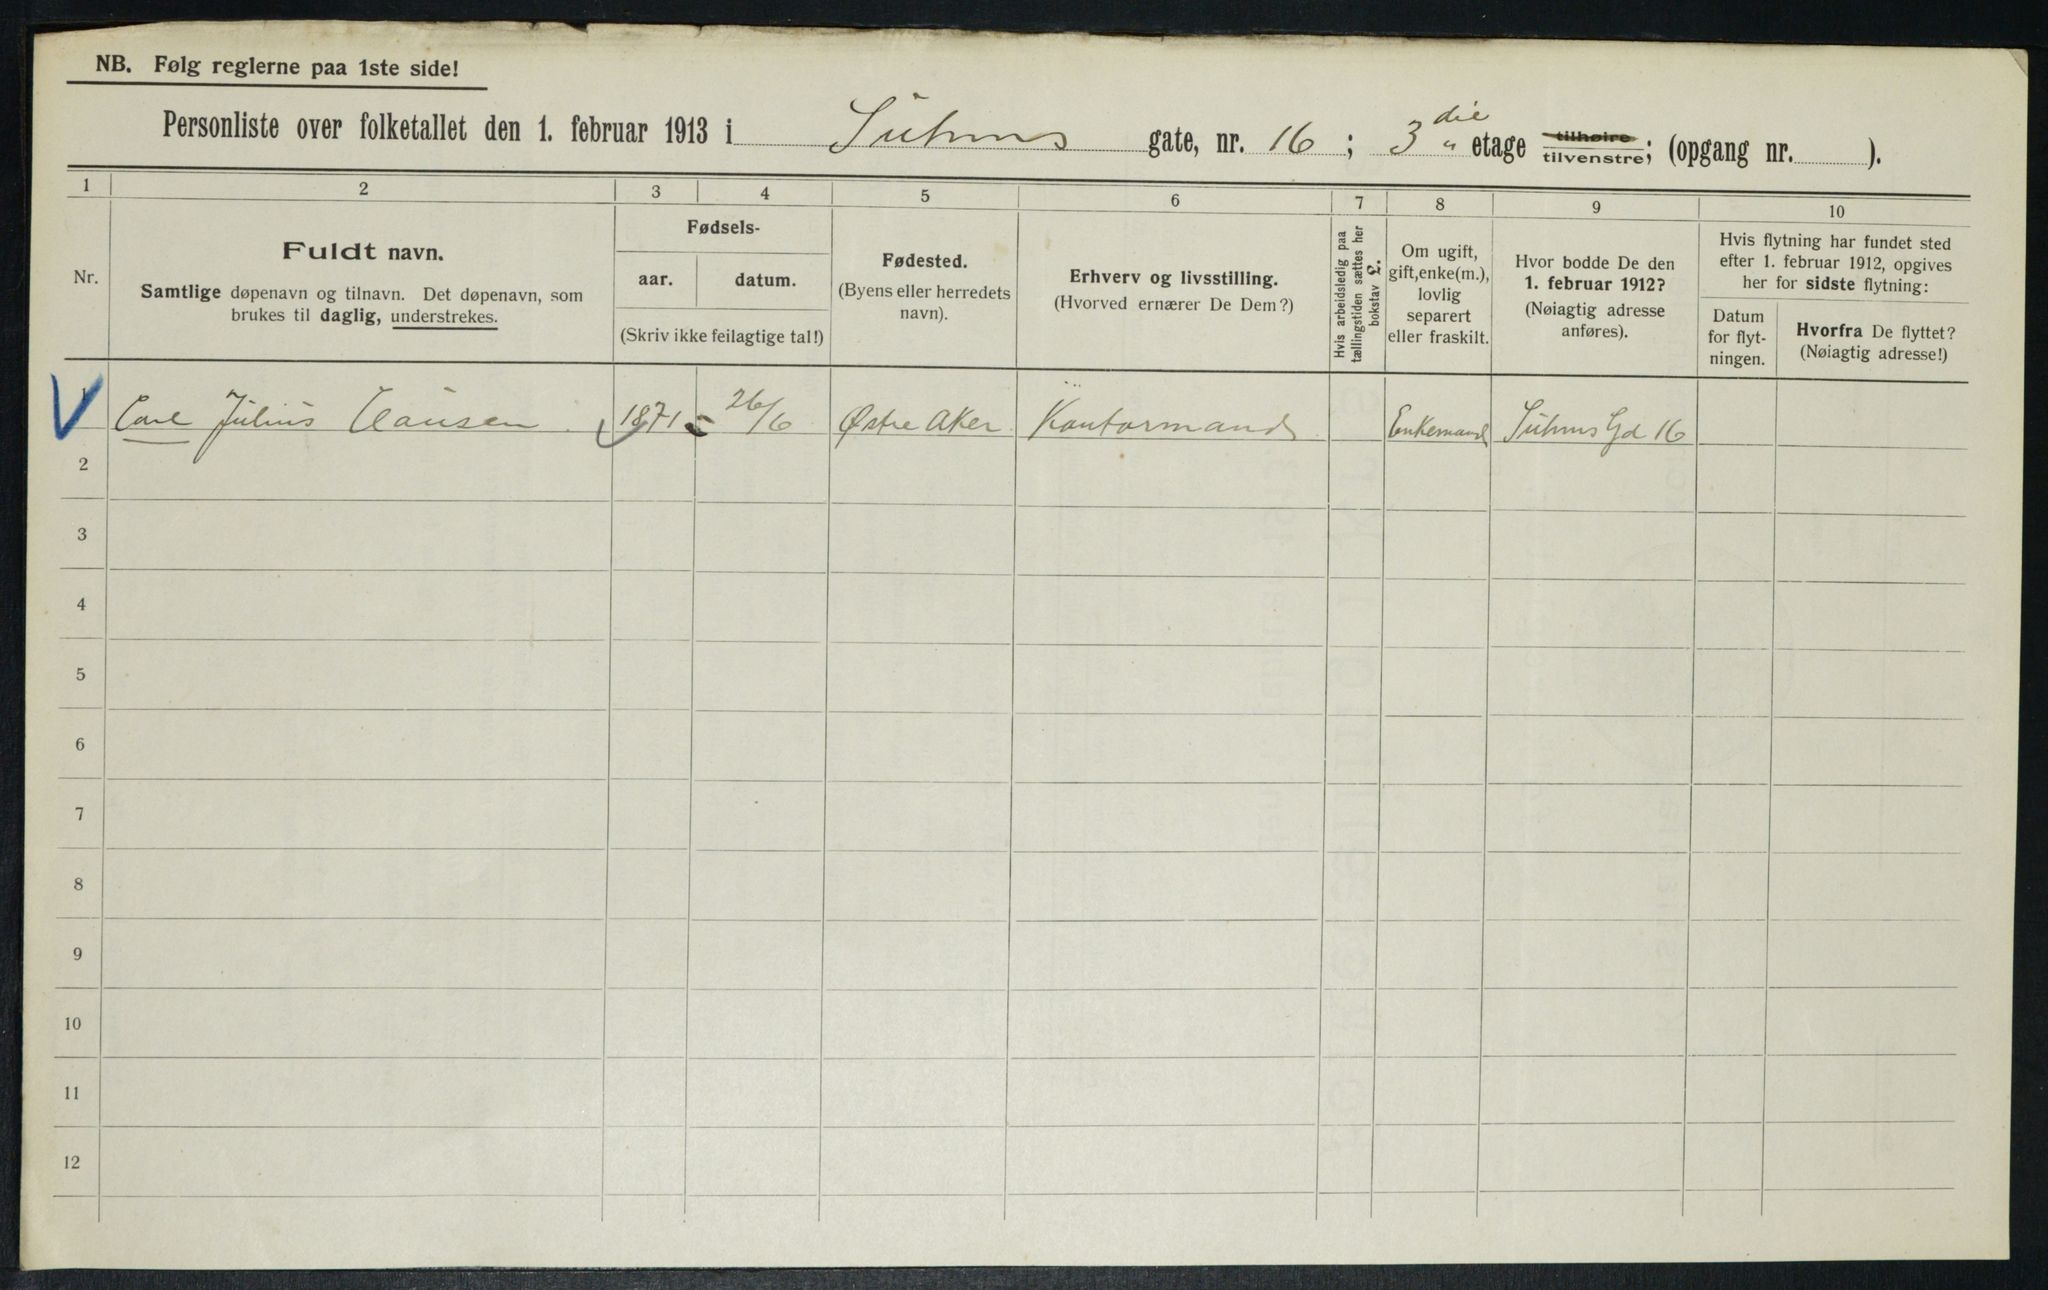 NB. Følg reglerne paa 1ste side!
Personliste over folketallet den 1. februar 1913 i Suhms gate, nr. 16; 3die etage tilhøire tilvenstre; (opgang nr. ).
1 2 3 4 5 6 7 8 9 10
Nr.
Fuldt navn.
Samtlige døpenavn og tilnavn. Det døpenavn, som
brukes til daglig, understrekes.
Fødsels-
aar. datum.
(Skriv ikke feilagtige tal!)
Fødested.
(Byens eller herredets
navn).
Erhverv og livsstilling.
(Hvorved ernærer De Dem?)
Hvis arbeidsledig paa
tællingstiden sættes her
bokstav L.
Om ugift,
gift, enke(m.),
lovlig
separert
eller fraskilt.
Hvor bodde De den
1. februar 1912?
(Nøiagtig adresse
anføres).
Hvis flytning har fundet sted
efter 1. februar 1912, opgives
her for sidste flytning:
Datum
for flyt-
ningen.
Hvorfra De flyttet?
(Nøiagtig adresse!)
1 Carl Julius Clausen 1871 26/6 Østre Aker Kontormand Enkemand Suhms Gd 16
2
3
4
5
6
7
8
9
10
11
12